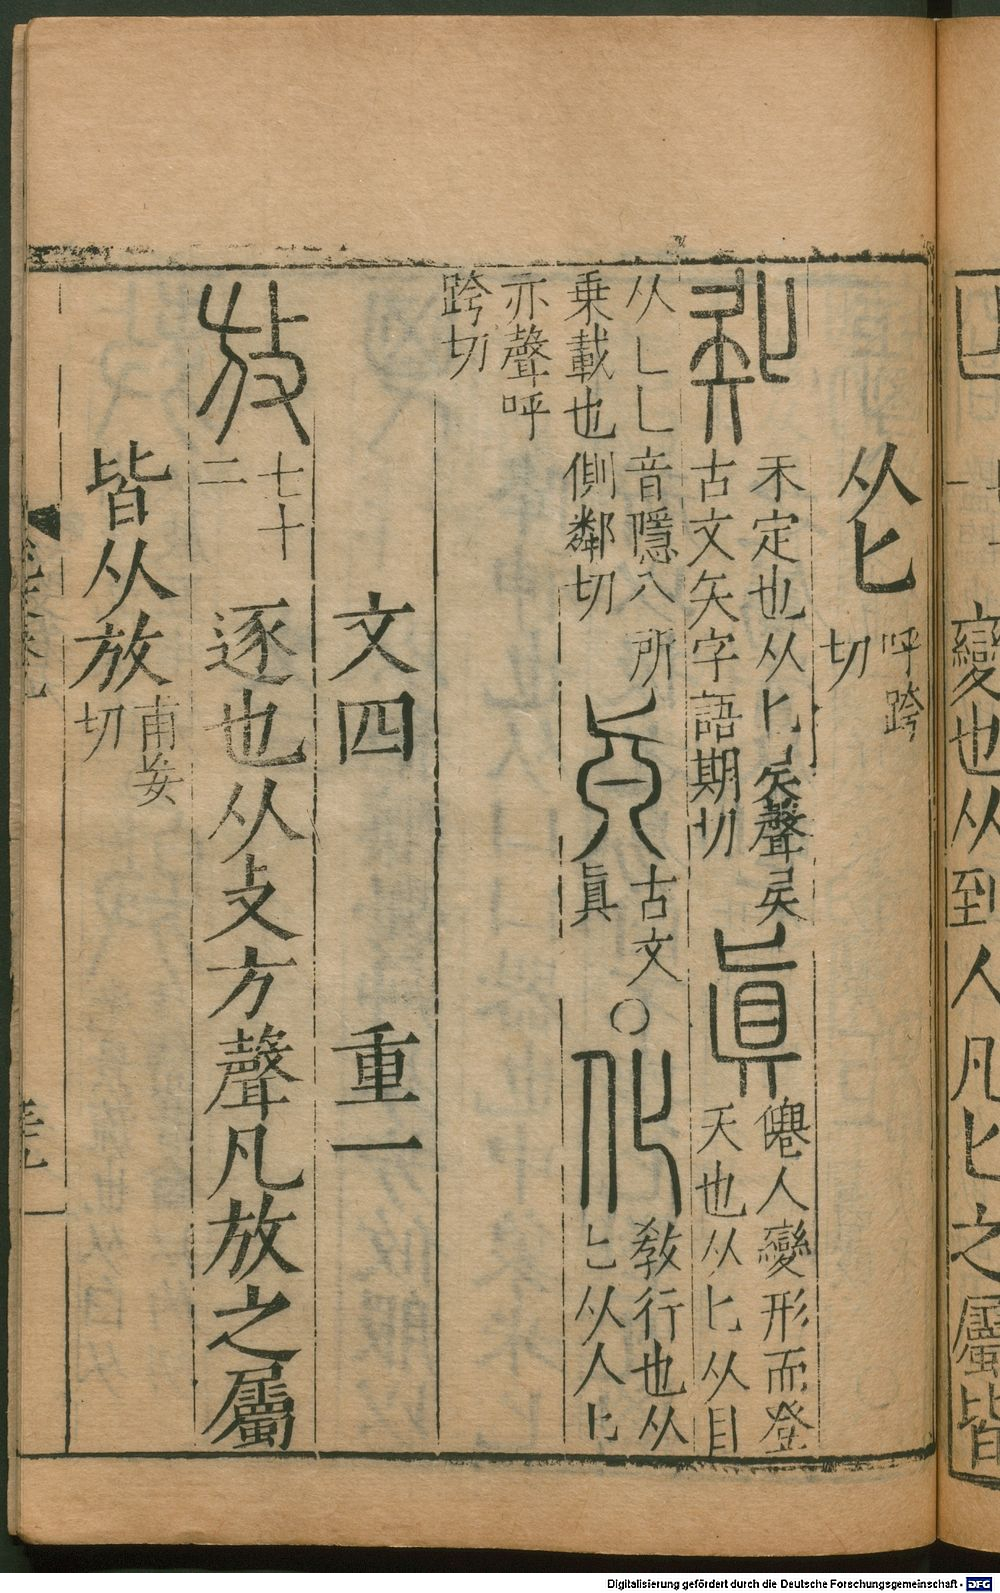 變也从到人凡匕之屬皆
从匕呼跨切
𠤗未定也从匕𠤕聲𠤕古文矢字語期切
眞僊人變形而登天也从匕从目
从乚乚音隱八所乗載也側鄰切
古文眞〇
化教行也从匕从人匕亦聲呼跨切
文四 重一
放七十二 逐也从攴方聲凡放之屬
皆从放甫妄切
Digitalisierung gefördert durch die Deutsche Forschungsgemeinschaft - DFG